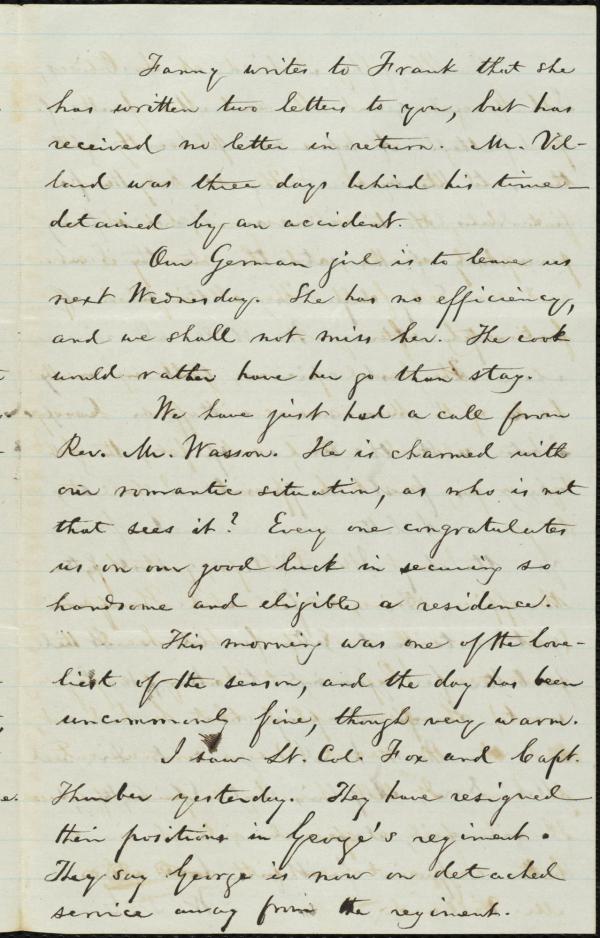 Fanny writes to Frank that she
has written two letters to you, but has
received no letter in return. Mr. Vil-
lard was three days behind his time —
detained by an accident.
Our German girl is to leave us
next Wednesday. She has no efficiency,
and we shall not miss her. The cook
would rather have her go than stay.
We have just had a call from
Rev. Mr. Wasson. He is charmed with
our romantic situation, as who is not
that sees it? Every one congratulates
us on our good luck in securing so
handsome and eligible a residence.
This morning was one of the love-
liest of the season, and the day has been
uncommonly fine, though very warm.
I saw Lt. Col. Fox and Capt.
Thurber yesterday. They have resigned
their positions in George's regiment.
They say George is now on detached
service away from the regiment.